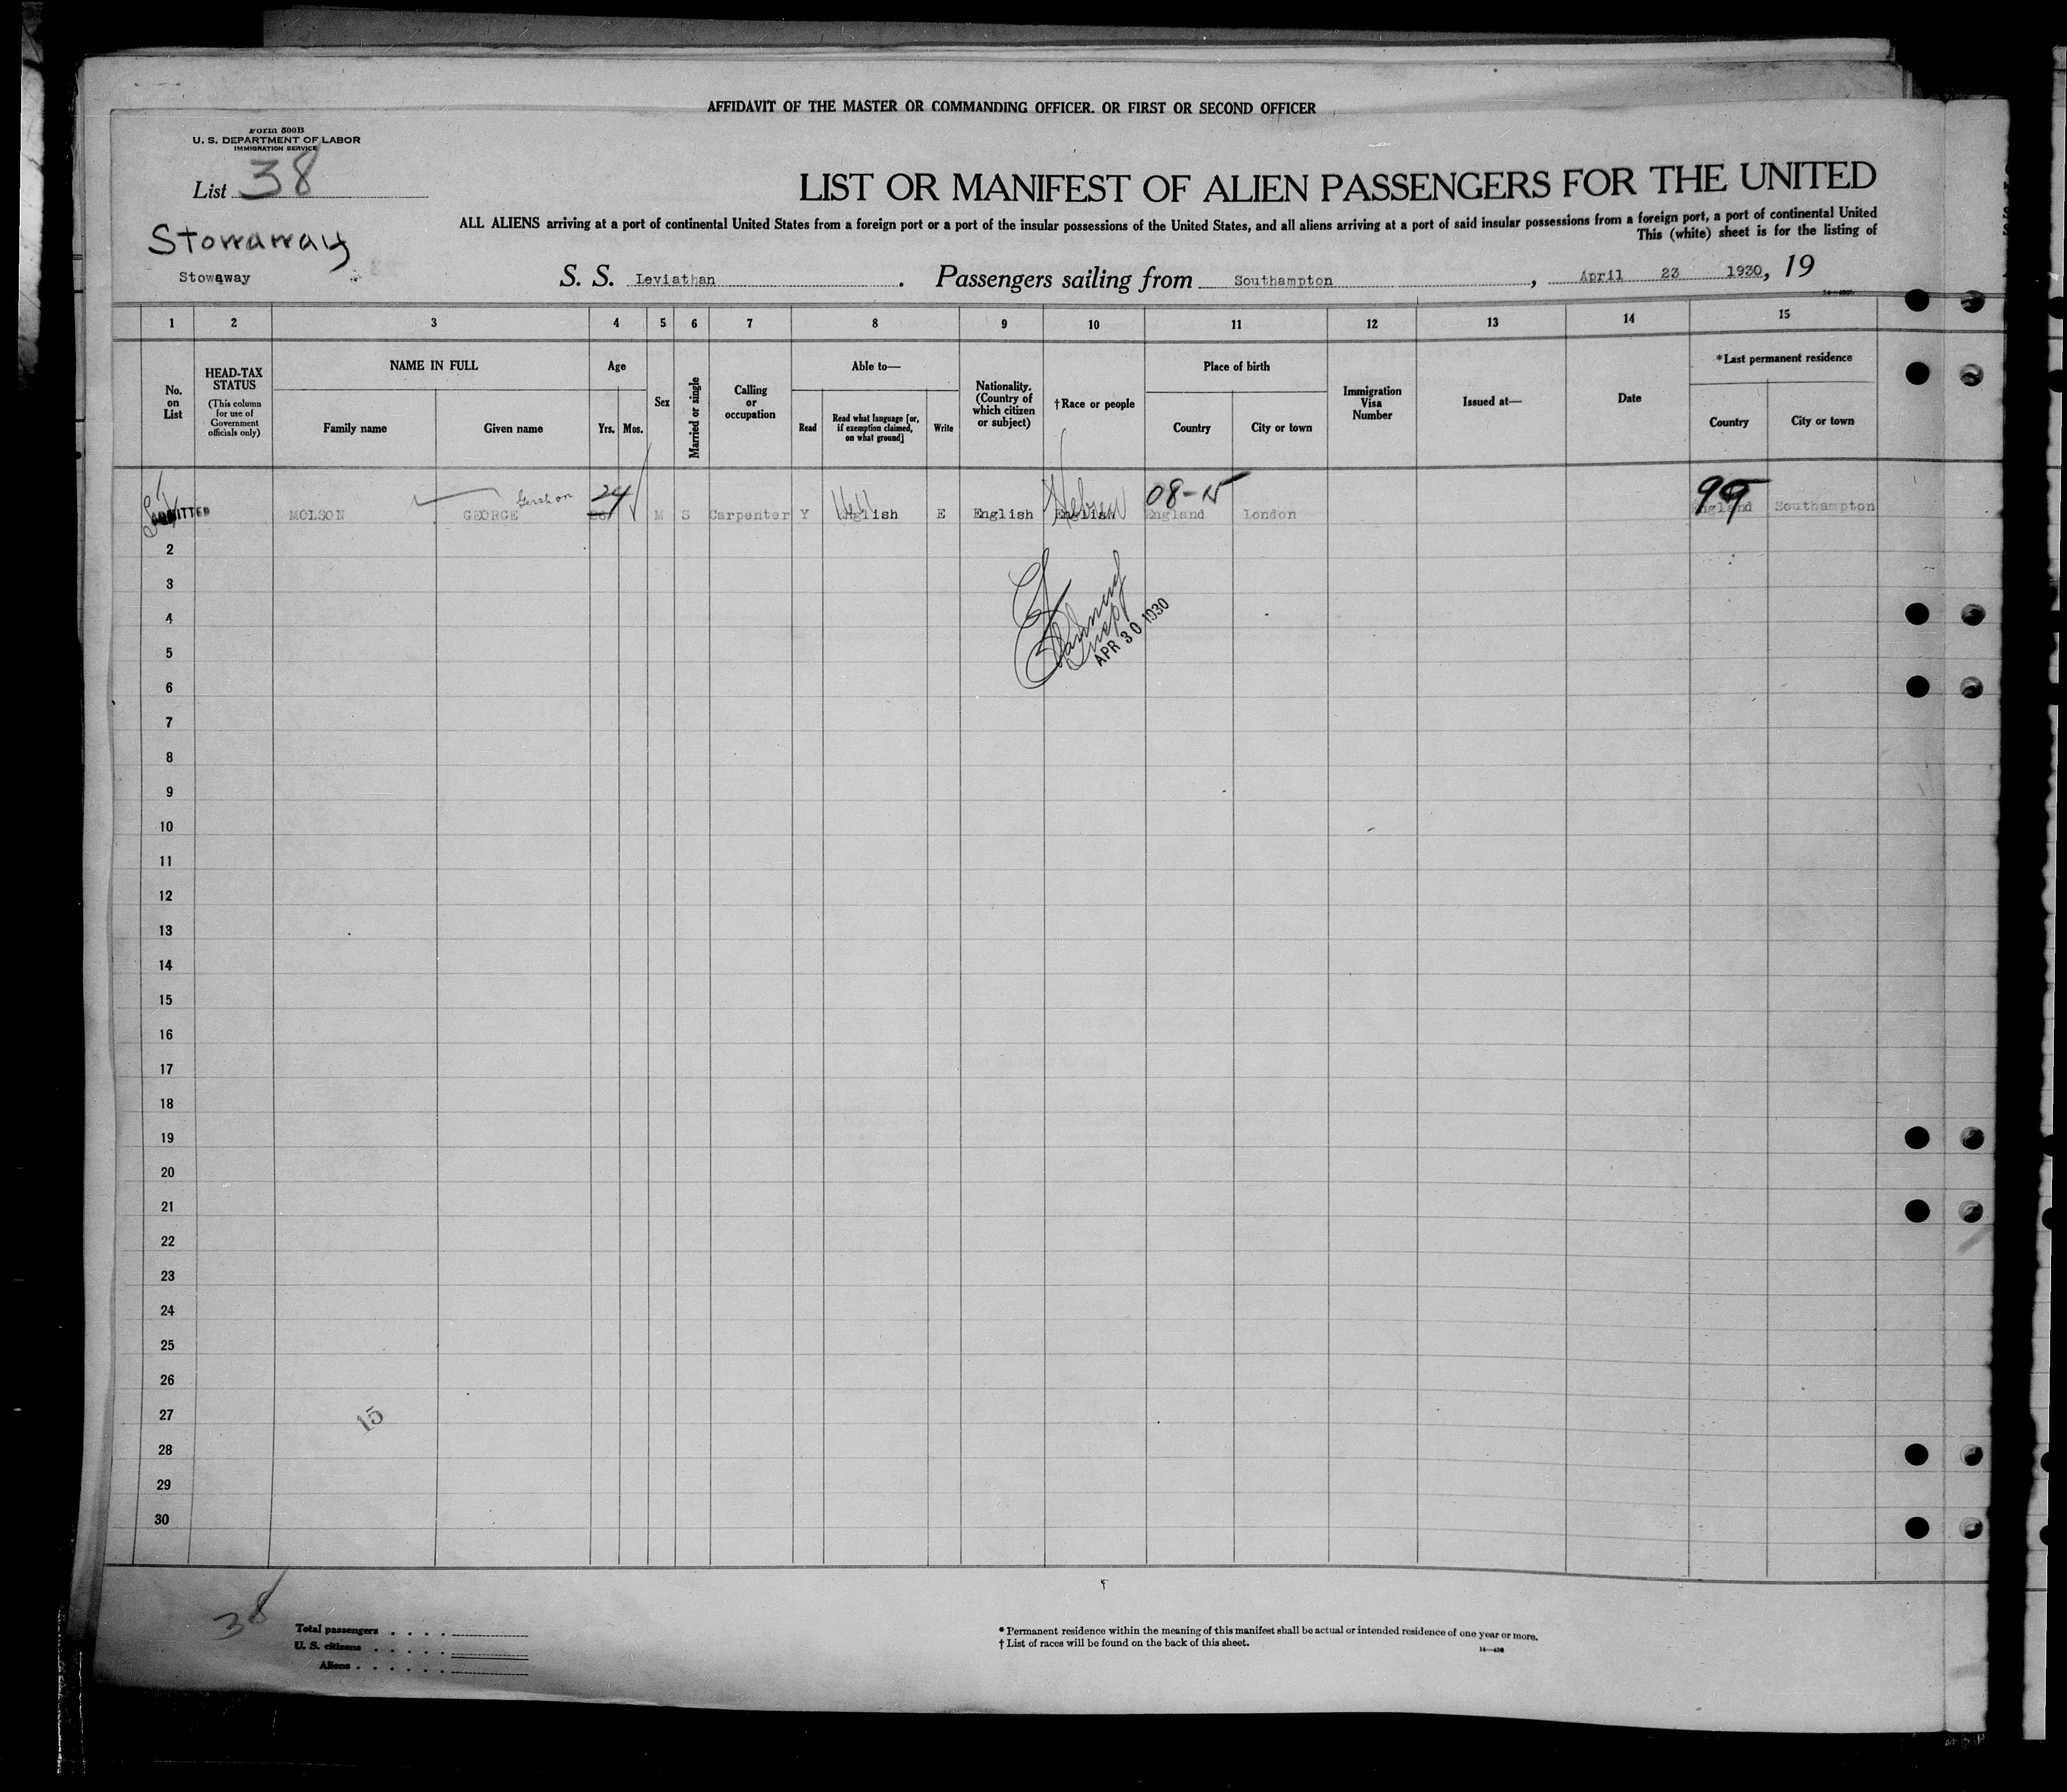 AFFIDAVIT OF THE MASTER OR COMMANDING OFFICER. OR FIRST OR SECOND OFFICER
Form 500B
U. S. DEPARTMENT OF LABOR
IMMIGRATION SERVICE
List 38
LIST OR MANIFEST OF ALIEN PASSENGERS FOR THE UNITED
ALL ALIENS arriving at a port of continental United States from a foreign port or a port of the insular possessions of the United States, and all aliens arriving at a port of said insular possessions from a foreign port, a port of continental United
This (white) sheet is for the listing of
Stowaway
Stowaway
S. S. Leviathan. Passengers sailing from Southampton, April 23 1930, 19
1 2 3 4 5 6 7 8 9 10 11 12 13 14 15
No. on List
HEAD-TAX STATUS
(This column for use of Government officials only)
NAME IN FULL
Family name
Given name
Age
Yrs.
Mos.
Sex
Married or single
Calling or occupation
Able to—
Read
Read what language [or, if exemption claimed, on what ground]
Write
Nationality. (Country of which citizen or subject)
†Race or people
Place of birth
Country
City or town
Immigration Visa Number
Issued at—
Date
*Last permanent residence
Country
City or town
Gershon 24 Hebrew 08-15 99
ADMITTED MOLSON GEORGE M S Carpenter Y English E English English England London England Southampton
2
3
4
APR 30 1930
5
6
7
8
9
10
11
12
13
14
15
16
17
18
19
20
21
22
23
24
25
26
27
15
28
29
30
38
Total passengers . . . .
U. S. citizens . . . . .
Aliens . . . . . .
* Permanent residence within the meaning of this manifest shall be actual or intended residence of one year or more.
† List of races will be found on the back of this sheet.